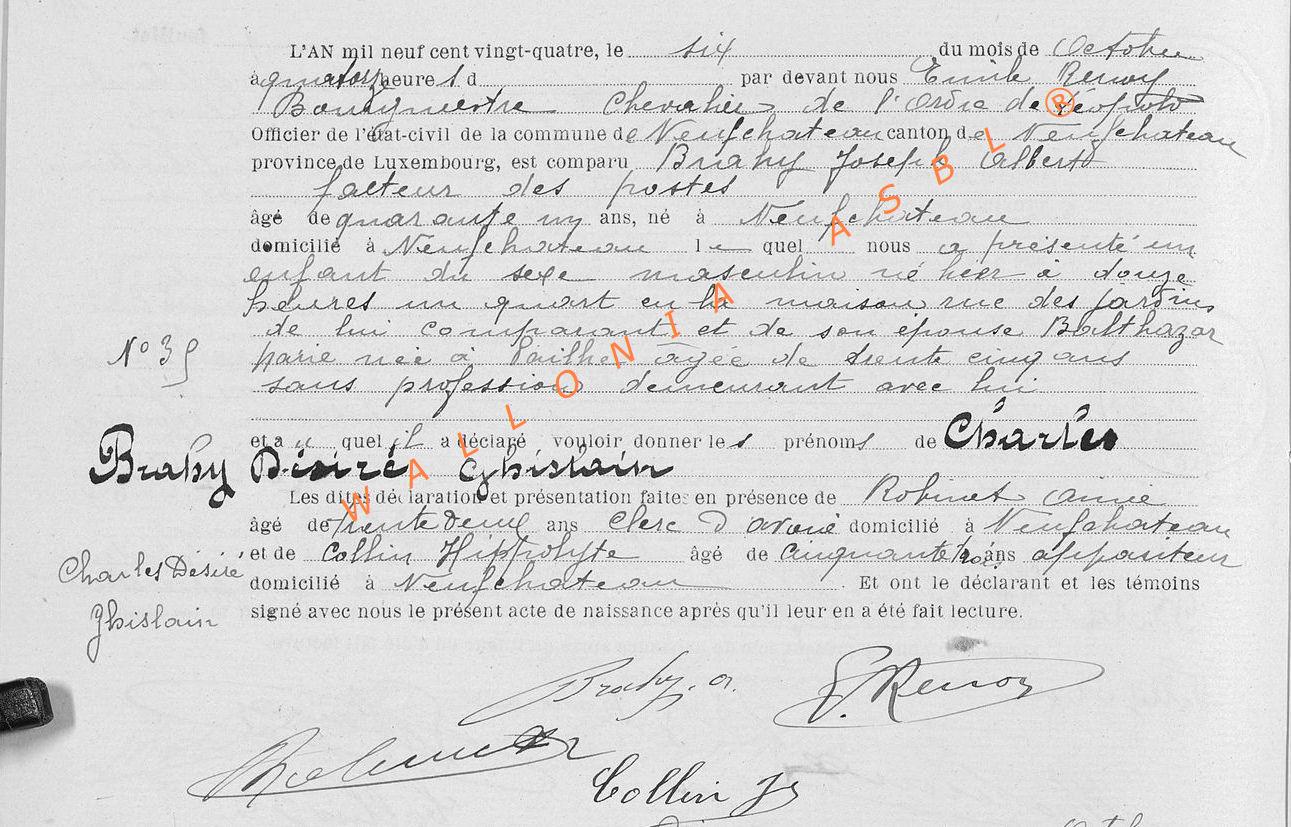 L'AN mil neuf cent vingt-quatre, le six du mois de Octobre
à quatorze heure s d par devant nous Emile Renoy
Bourgmestre Chevalier de l'Ordre de Léopold
Officier de l'état-civil de la commune de Neufchateau canton de Neufchateau
province de Luxembourg, est comparu Brahy Joseph Albert
facteur des postes
âgé de quarante un ans, né à Neufchateau
domicilié à Neufchateau le quel nous a présenté un
enfant du sexe masculin né hier à douze
heures un quart en la maison rue des jardins
de lui comparant et de son épouse Balthazar
Marie née à Pailhe âgée de trente cinq ans
N° 35
sans profession demeurant avec lui
et a u quel il a déclaré vouloir donner le s prénoms de Charles
Brahy Désiré Ghislain
Les dites déclaration et présentation faites en présence de Robinet
âgé de trente deux ans clerc d'avoué domicilié à Neufchateau
et de Collin Hippolyte âgé de cinquante trois ans appariteur
Charles Désiré
domicilié à Neufchateau. Et ont le déclarant et les témoins
Ghislain
signé avec nous le présent acte de naissance après qu'il leur en a été fait lecture.
Brahy. a.
E. Renoy
Robinet
Collin Jh
WALLONIA ASBL ®